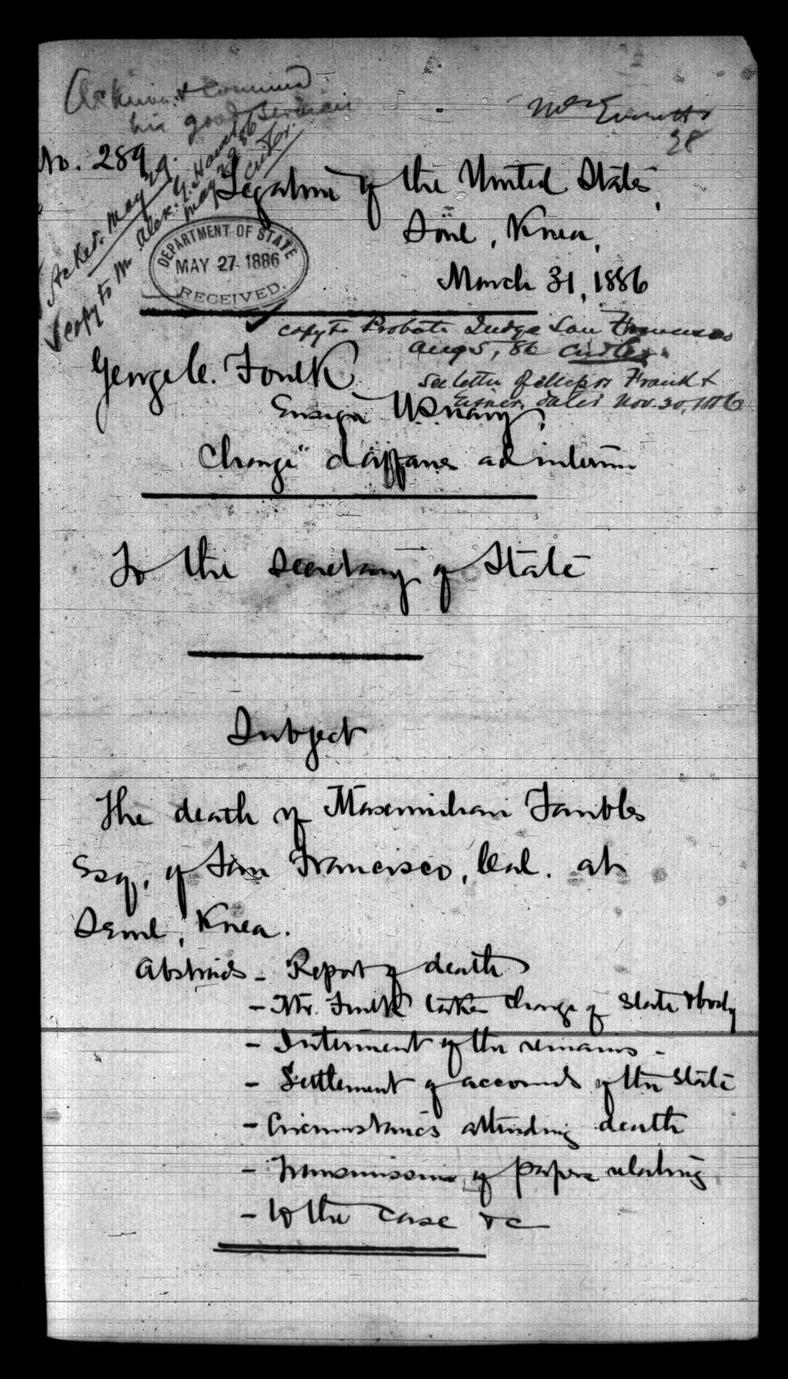 Acknow. & Commend
his good services
Mr Everett
28
No. 289
Ackd. May 29.
Copy to Mr Alex. G. Hawes
May 29 86
Legation of the United States,
Söul, Korea,
March 31, 1886
DEPARTMENT OF STATE
MAY 27 1886
RECEIVED.
copy to Probate Judge San Francisco
Aug 5, 86
See letter of Messrs Frank &
dated Nov. 30, 1886
George C. Foulk
Ensign U.S. Navy,
Chargé d'affaires ad interim
To the Secretary of State
Subject
The death of Maximilian Taubles
Esq, of San Francisco, Cal. at
Seoul, Korea.
Abstracts - Report of death
- Mr. Foulk takes charge of State & body
- Interment of the remains -
- Settlement of accounts of the State
- Circumstances attending death
- Transmission of papers relating
- to the case &c